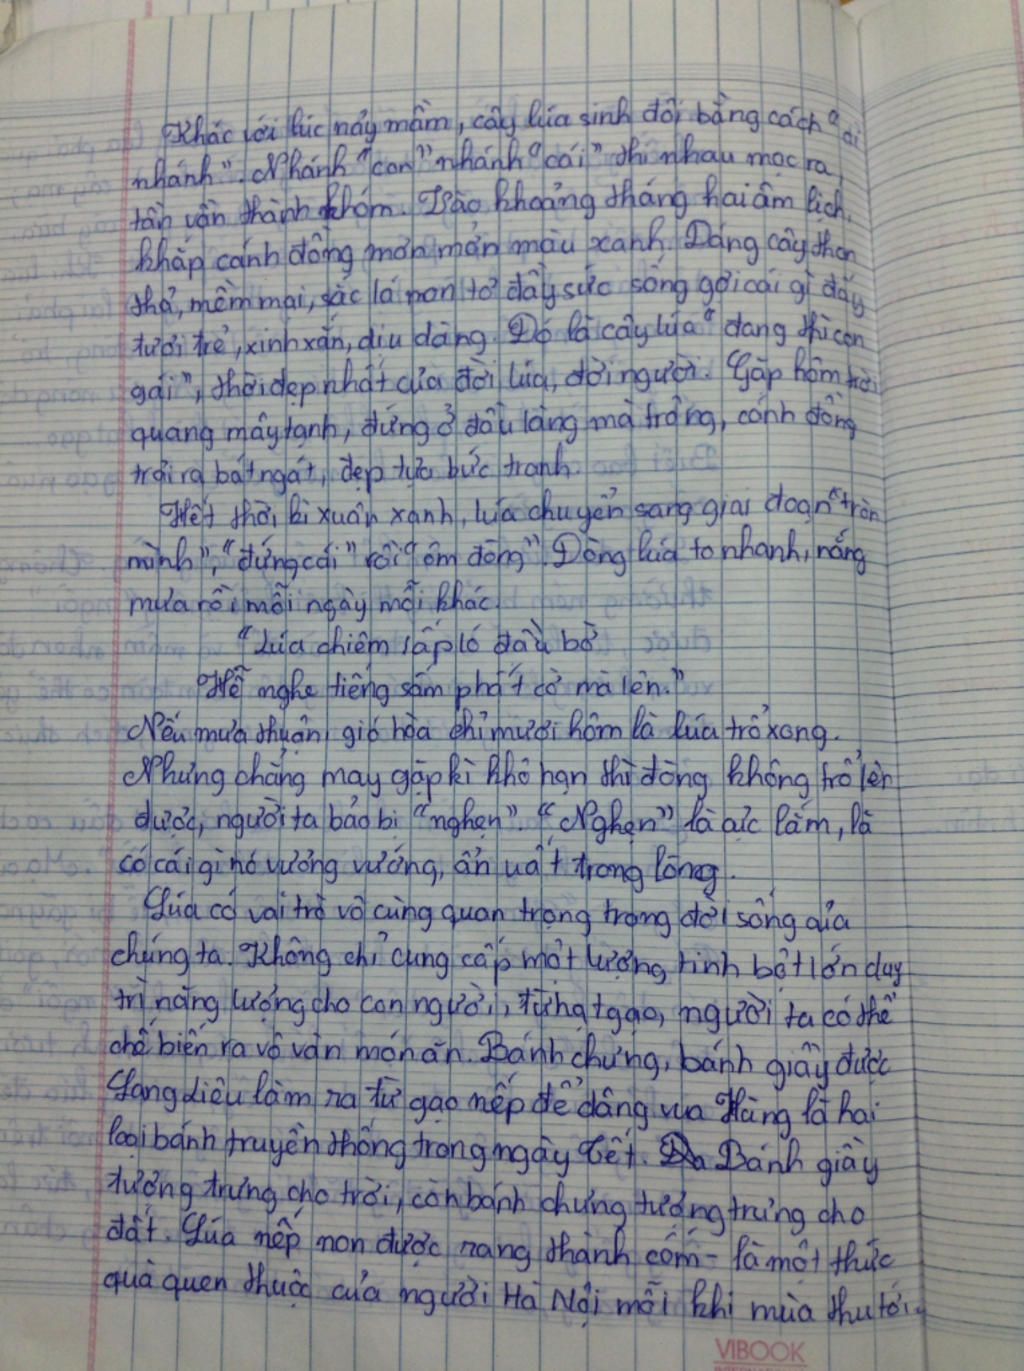 Khác với lúc nảy mầm, cây lúa sinh đôi bằng cách "đi
nhánh". Nhánh "con" nhánh "cái" thi nhau mọc ra,
tần vần thành khóm. Vào khoảng tháng hai âm lịch,
khắp cánh đồng mơn mởn màu xanh. Dáng cây thon
thả, mềm mại, sắc lá non tơ đầy sức sống gợi cái gì đấy
tươi trẻ, xinh xắn, dịu dàng. Đó là cây lúa "đang thì con
gái", thời đẹp nhất của đời lúa, đời người. Gặp hôm trời
quang mây tạnh, đứng ở đầu làng mà trông, cánh đồng
trải ra bát ngát, đẹp tựa bức tranh.
Hết thời kì xuân xanh, lúa chuyển sang giai đoạn "tròn
mình", "đứng cái" rồi "ôm đòng". Đòng lúa to nhanh, nắng
mưa rồi mỗi ngày mỗi khác.
"Lúa chiêm lấp ló đầu bờ
Hễ nghe tiếng sấm phất cờ mà lên."
Nếu mưa thuận gió hòa chỉ mươi hôm là lúa trổ xong.
Nhưng chẳng may gặp kì khô hạn thì đòng không trổ lên
được, người ta bảo bị "nghẹn". "Nghẹn" là ực lắm, là
có cái gì nó vương vướng, ẩn uất trong lòng.
Lúa có vai trò vô cùng quan trọng trong đời sống của
chúng ta. Không chỉ cung cấp một lượng tinh bột lớn duy
trì năng lượng cho con người, từ hạt gạo, người ta có thể
chế biến ra vô vàn món ăn. Bánh chưng, bánh giầy được
Lang Liêu làm ra từ gạo nếp để dâng vua Hùng là hai
loại bánh truyền thống trong ngày Tết. Bánh giầy
tượng trưng cho trời, còn bánh chưng tượng trưng cho
đất. Lúa nếp non được rang thành cốm - là một thức
quà quen thuộc của người Hà Nội mỗi khi mùa thu tới.
VIBOOK